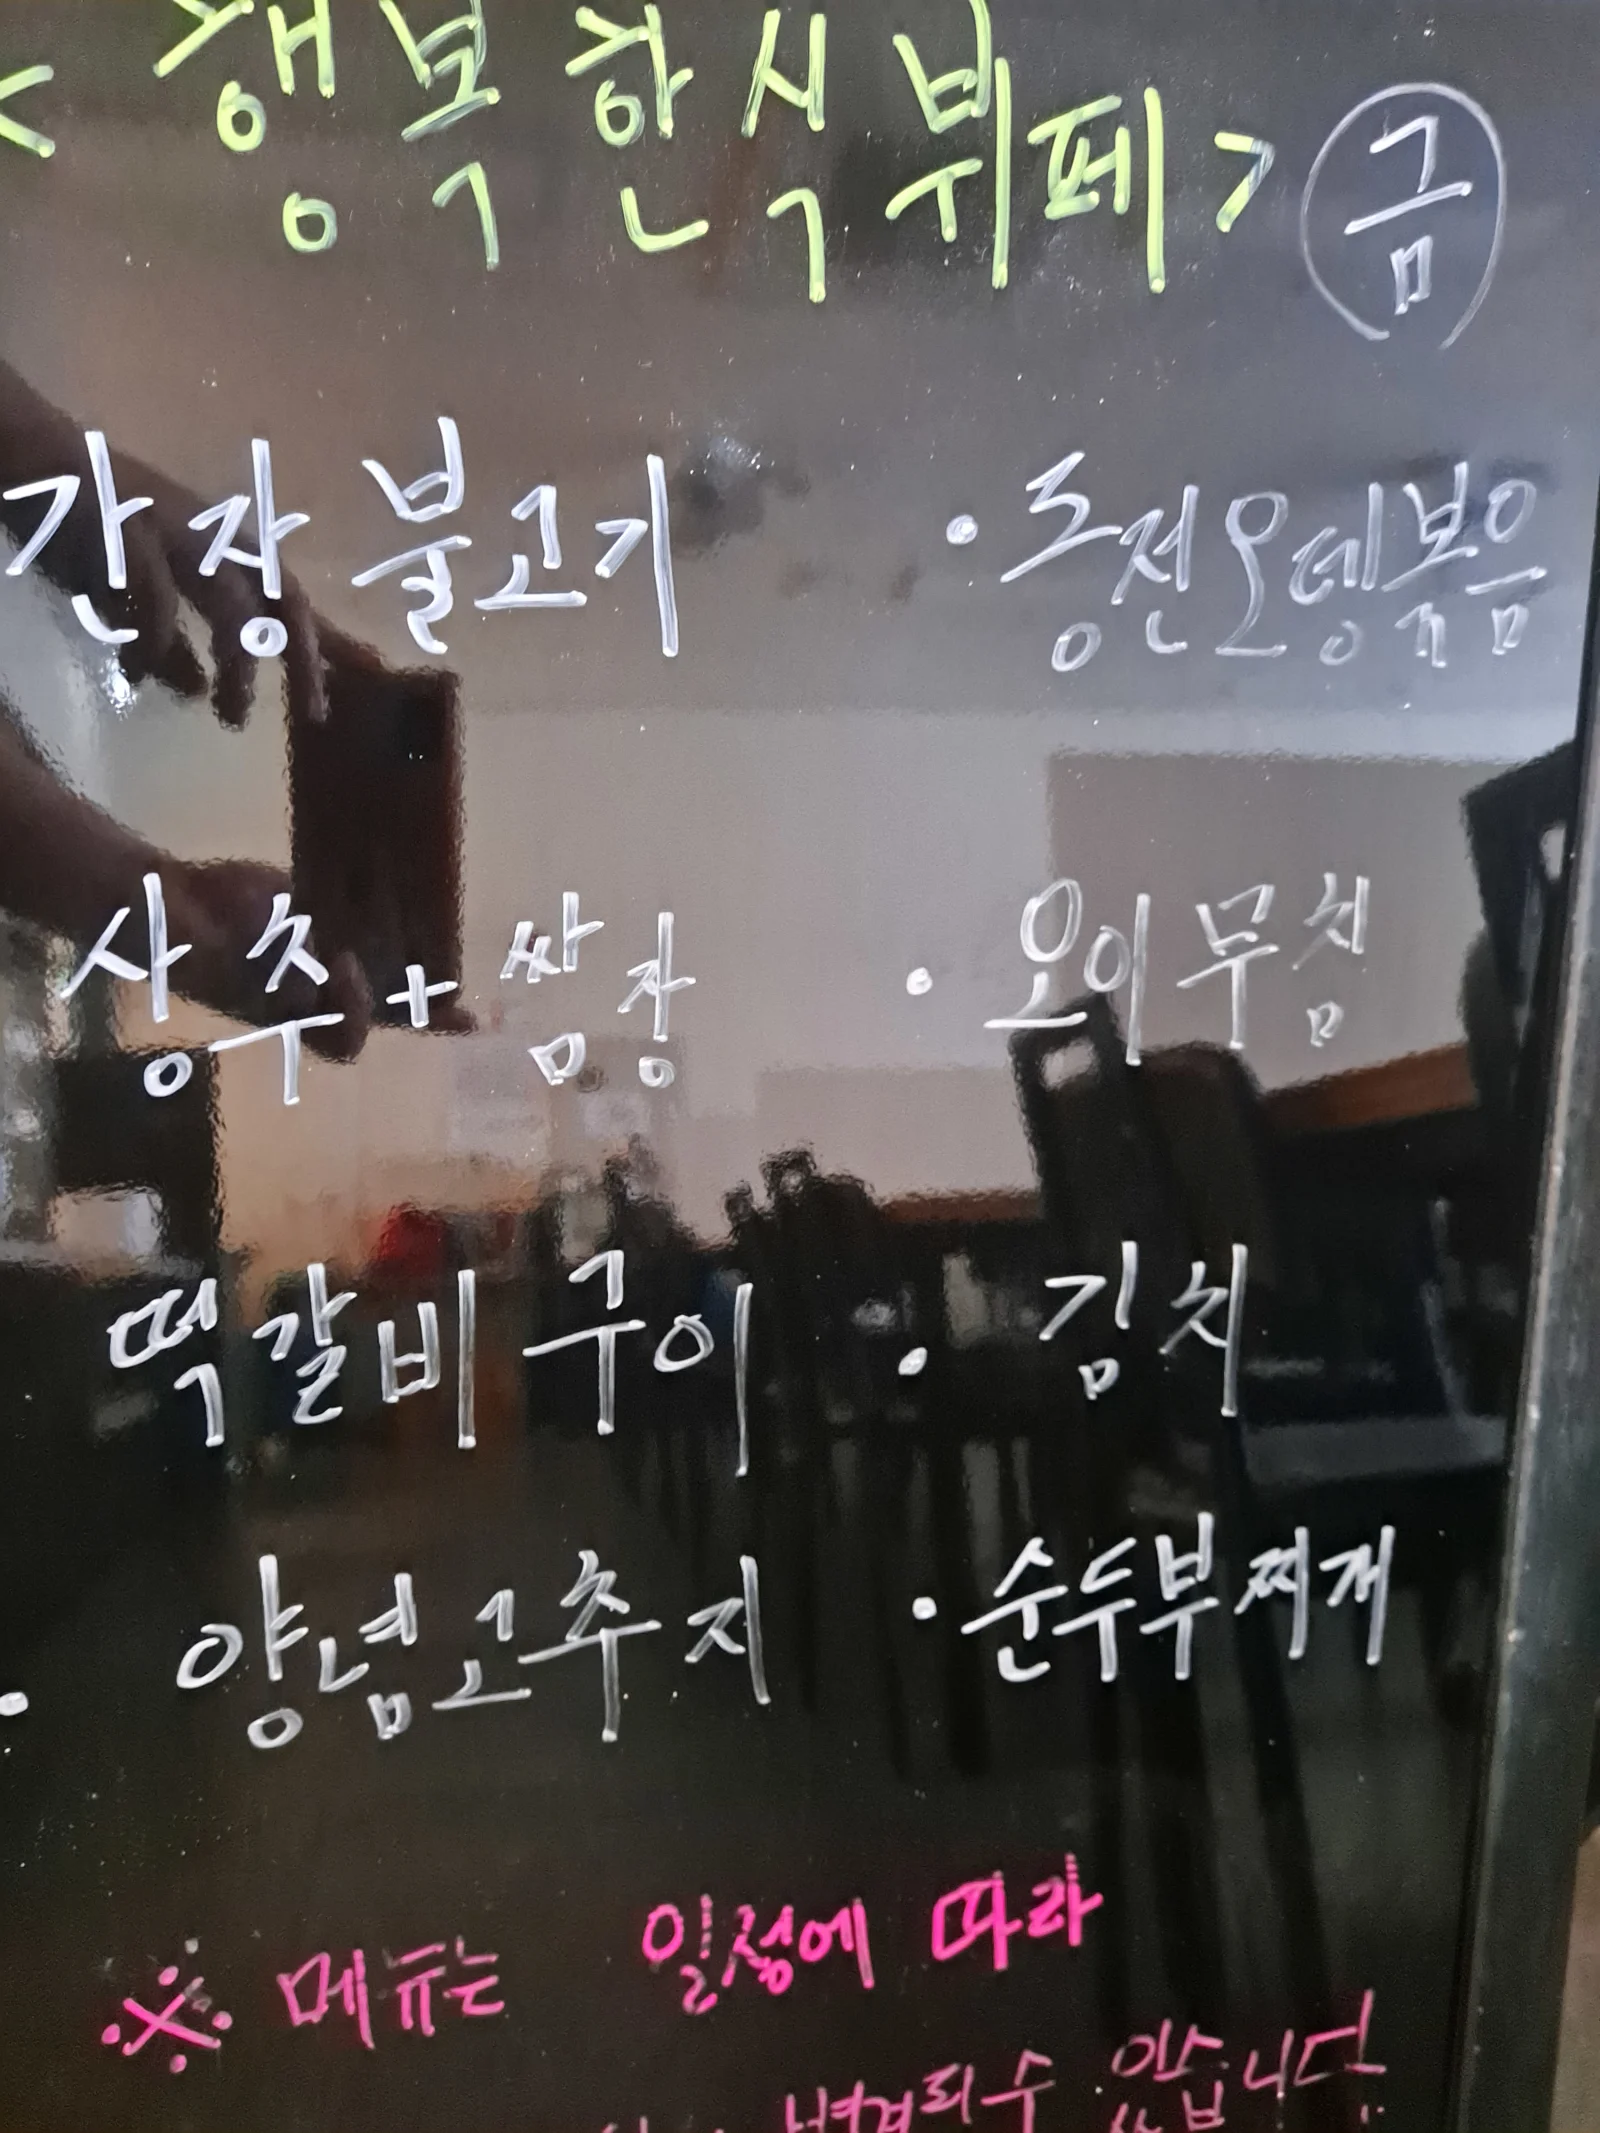 < 행복한식뷔페 > 금
간장불고기 · 동전오뎅볶음
상추+쌈장 · 오이무침
떡갈비구이 · 김치
· 양념고추지 · 순두부찌개
※ 메뉴는 일정에 따라
변경될수 있습니다